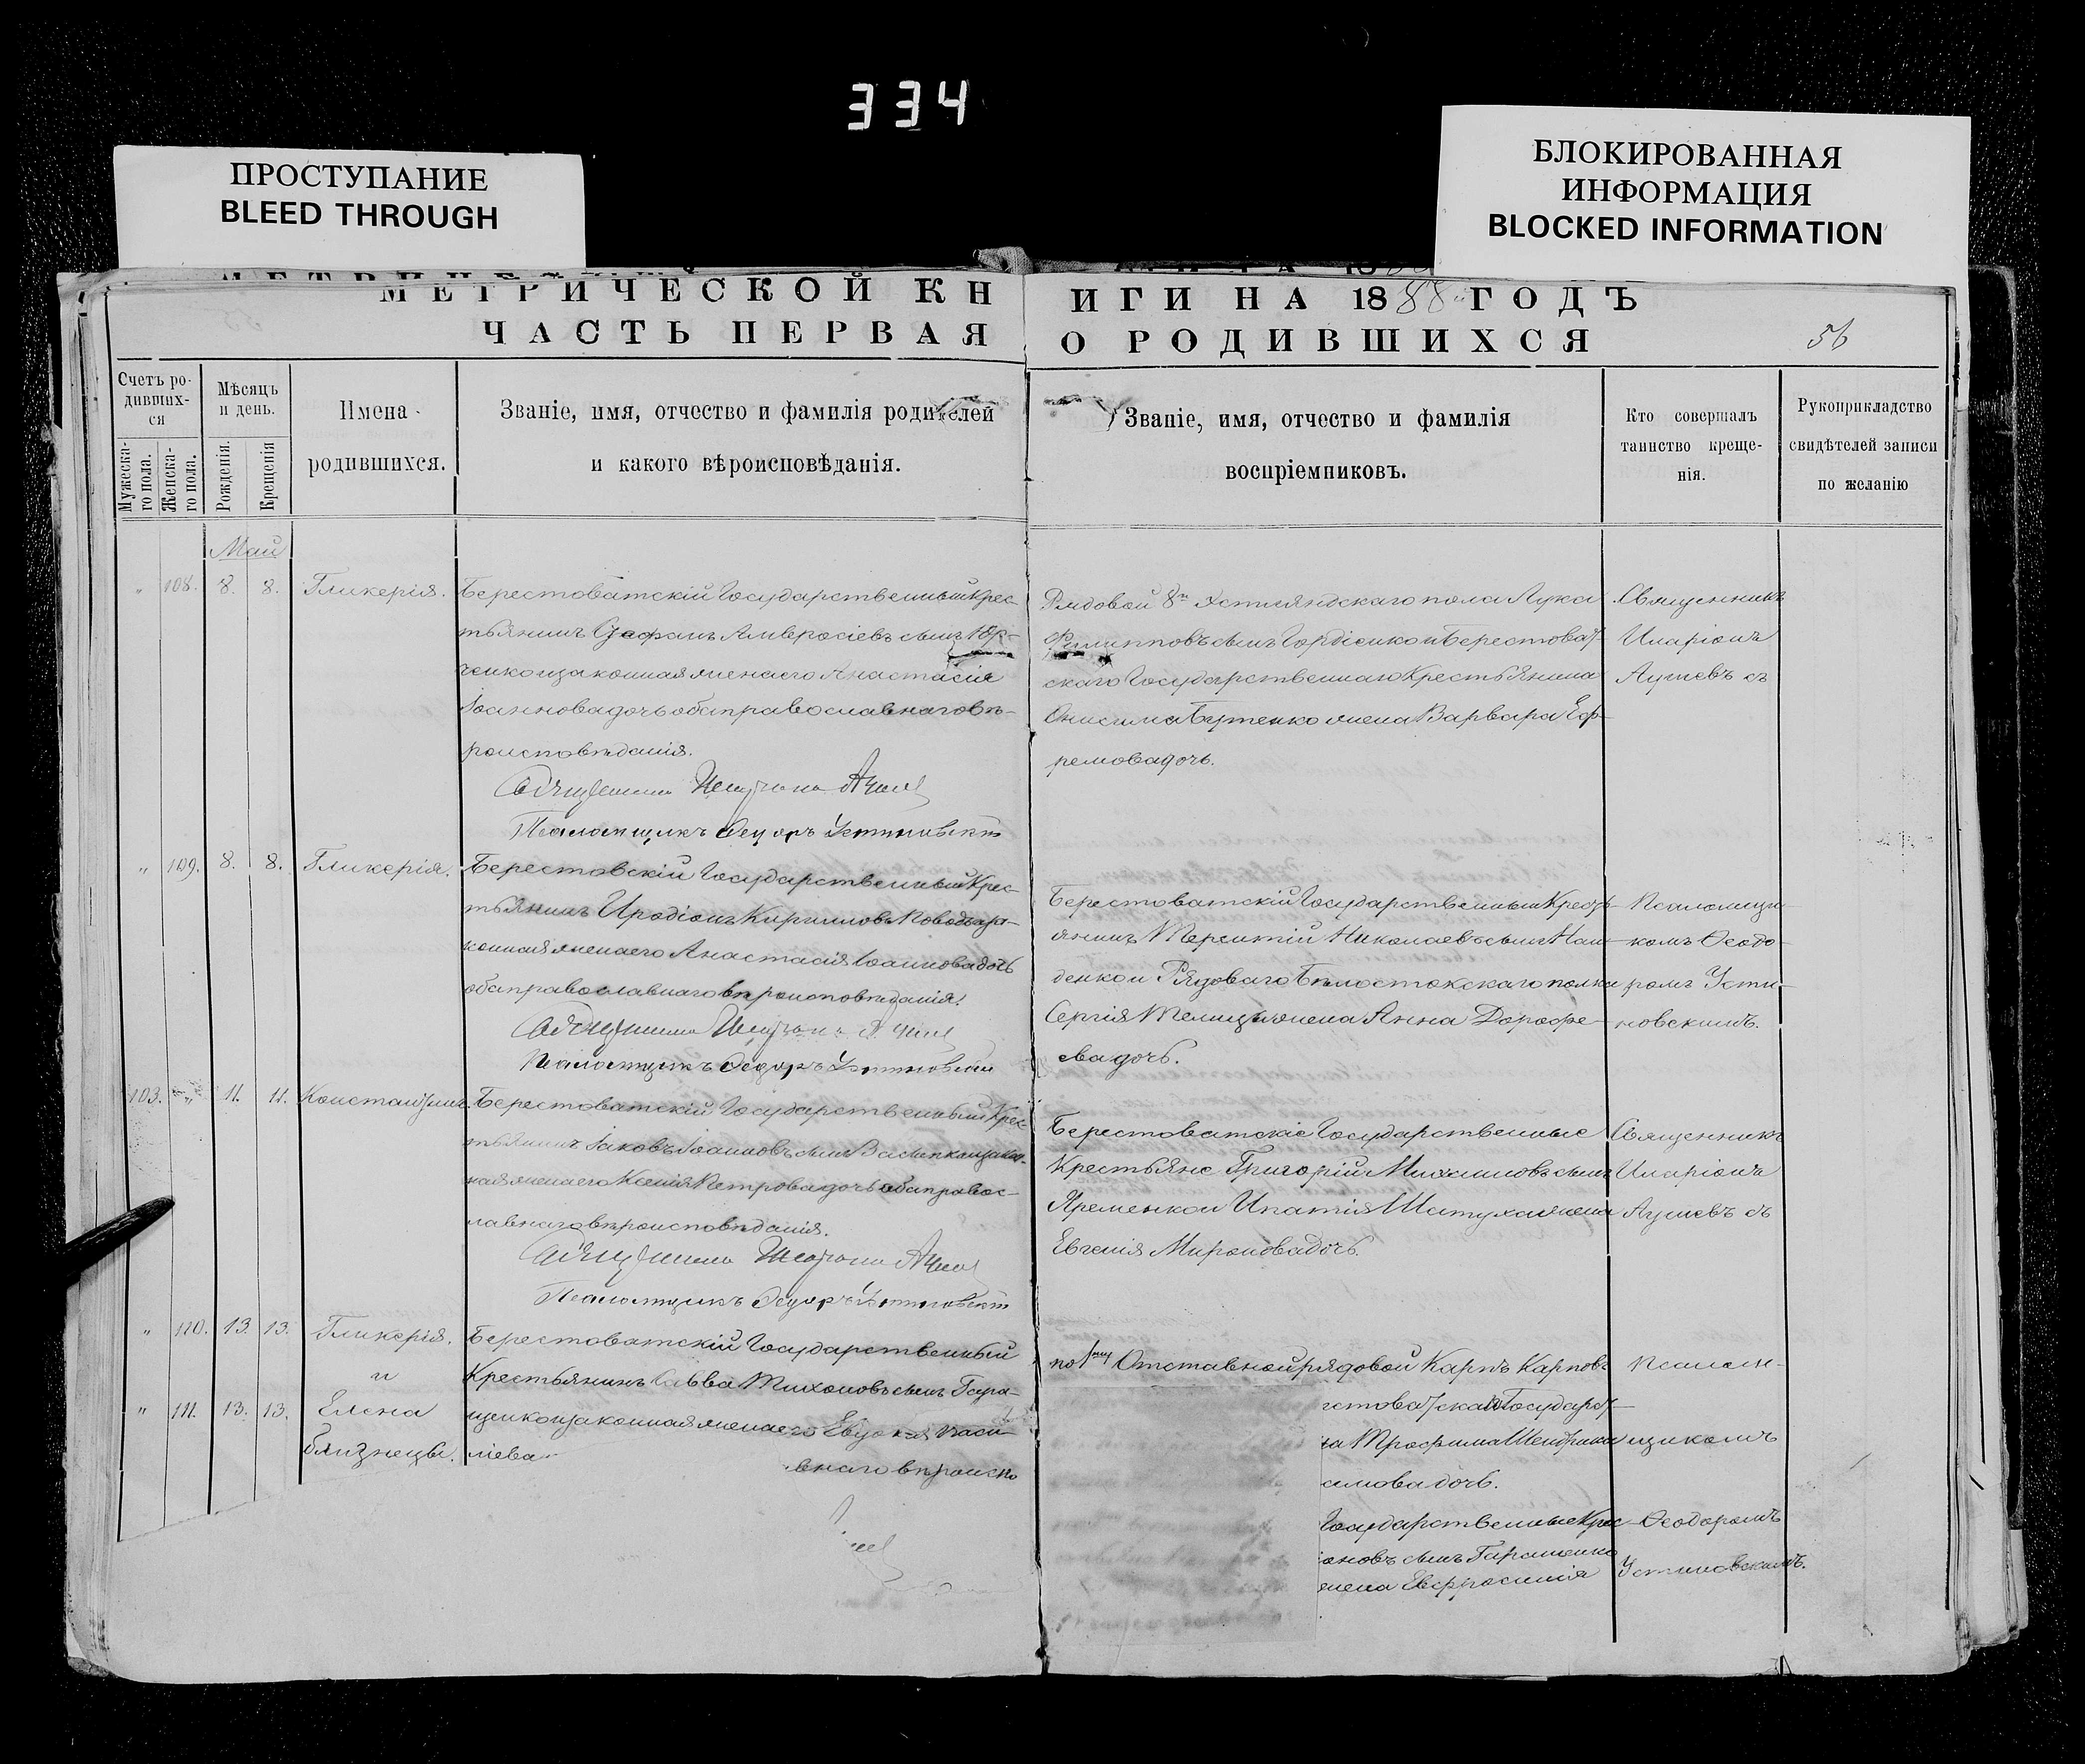 334
ПРОСТУПАНИЕ
BLEED THROUGH
БЛОКИРОВАННАЯ
ИНФОРМАЦИЯ
BLOCKED INFORMATION
МЕТРИЧЕСКОЙ КН
ИГИ НА 1888 ГОДЪ
ЧАСТЬ ПЕРВАЯ
О РОДИВШИХСЯ
56
Счетъ ро-
дивших-
ся
Мужеска-
го пола.
Женска-
го пола.
Мѣсяцъ
и день.
Рожденія.
Крещенія
Имена
родившихся.
Званіе, имя, отчество и фамилія родителей
и какого вѣроисповѣданія.
Званіе, имя, отчество и фамилія
воспріемниковъ.
Кто совершалъ
таинство креще-
нія.
Рукоприкладство
свидѣтелей записи
по желанію
Май
" 108. 8. 8. Гликерія.
Берестоватскій Государственный Крес-
тьянинъ Амвросіевъ сынъ Юр-
ченко и законная жена его Анастасія
Іоаннова дочь оба православнаго вѣ-
роисповѣданія.
Псаломщикъ Ѳедоръ Устиновскій
Рядовой 8го полка Лука
Филипповъ сынъ Гордіенко и Берестоват-
скаго Государственнаго Крестьянина
Онисима Бутенко жена Варвара Еф-
ремова дочь.
Священникъ
Иларіонъ
" 109. 8. 8. Гликерія.
Берестовскій Государственный Крес-
тьянинъ Иродіонъ Кирилловъ
конная жена его Анастасія Іоаннова дочь
оба православнаго вѣроисповѣданія.
Псаломщикъ Ѳедоръ Устиновскій
Берестоватскій Государственный Кресть-
янинъ Терентій Николаевъ сынъ
денко и Рядоваго Бѣлостокскаго полка
Сергія жена Анна Дорофе-
ева дочь.
Псаломщи-
комъ Ѳеодо-
ромъ Усти-
новскимъ.
103. " 11. 11. Константинъ.
Берестоватскій Государственный Крес-
тьянинъ Іаковъ Іоанновъ сынъ
ная жена его Ксенія Петрова дочь оба правос-
лавнаго вѣроисповѣданія.
Псаломщикъ Ѳедоръ Устиновскій
Берестоватскіе Государственные
Крестьяне Григорій Михаиловъ сынъ
Яременко и Ипатія жена
Евгенія Миронова дочь.
Священникъ
Иларіонъ
" 110. 13. 13. Гликерія.
и
" 111. 13. 13. Елена
близнецы.
Берестоватскій Государственный
Крестьянинъ Савва Тихоновъ сынъ Гара-
щенко и законная жена его Евдокія Васи-
ліева
внаго вѣроиспо
по 1му Отставной рядовой Карпъ Карповъ
Государст-
на Трофима
дочь.
Государственные Крес-
оновъ сынъ Гаращенко
жена Евфросинія
Псаломщ-
щикомъ
Ѳеодоромъ
Устиновскимъ.